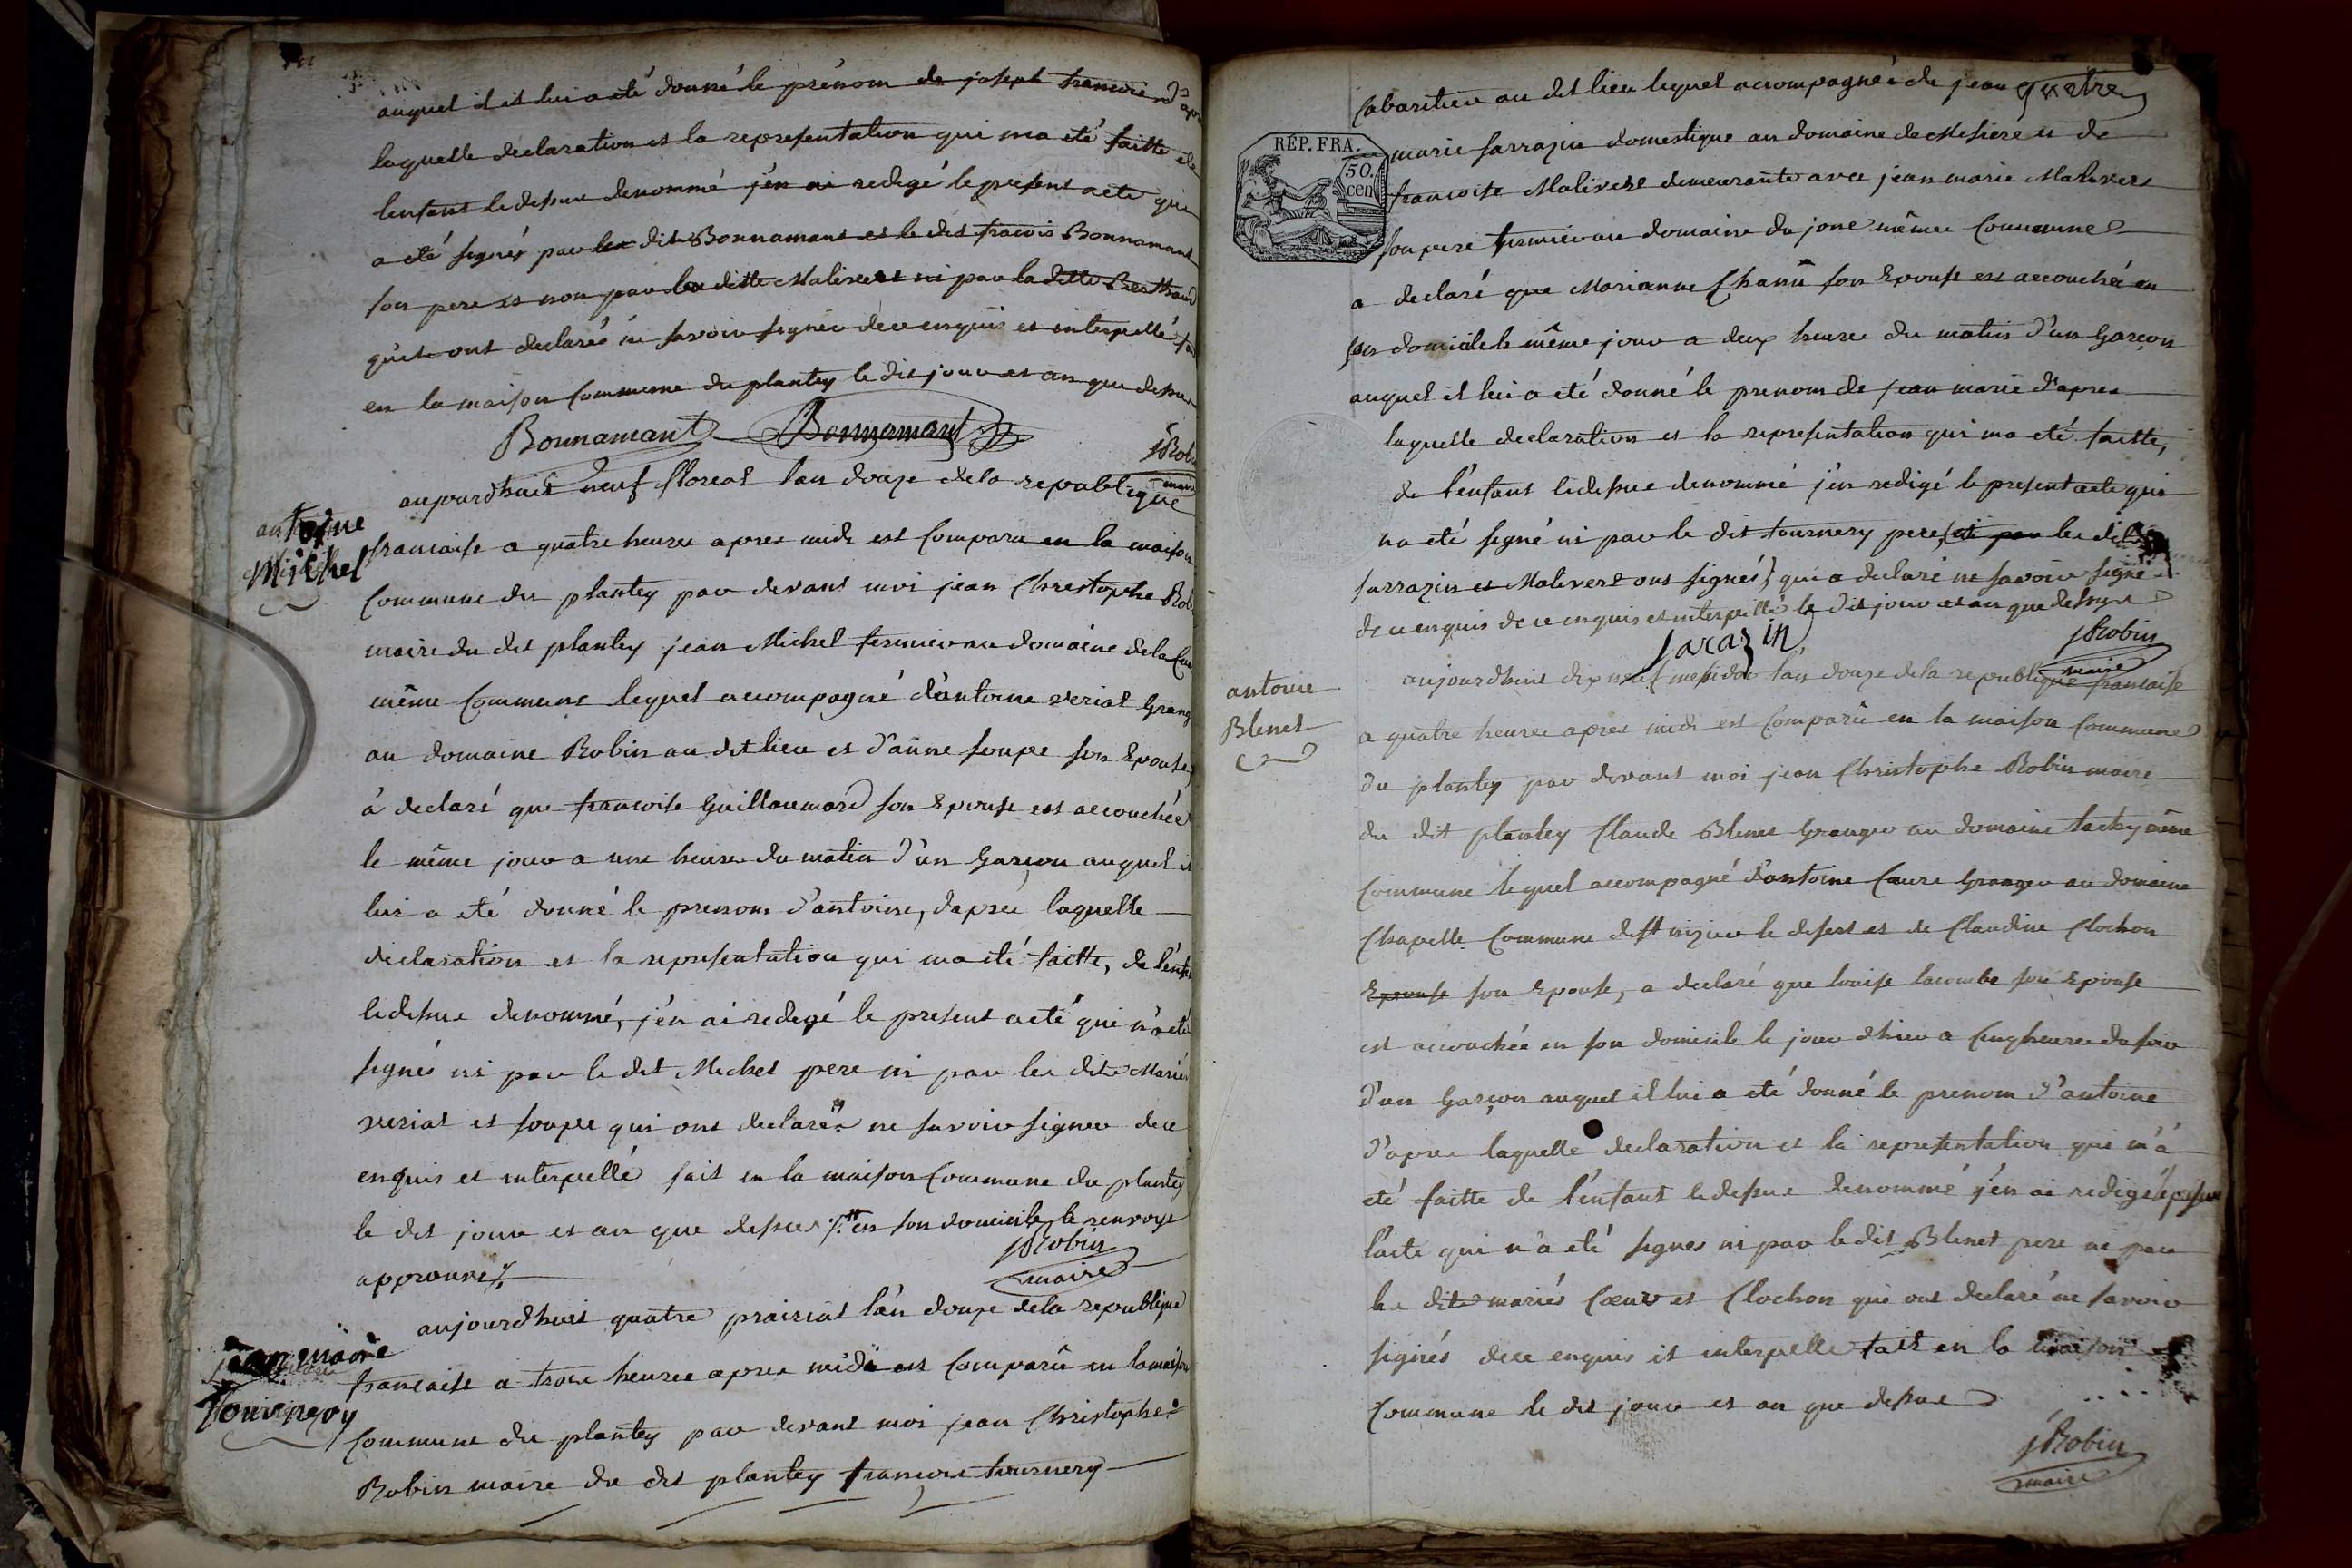 auquel il il lui a eté donné le prénom de joseph francois d'apr
laquelle declaration et la representation qui ma eté faitte de
lenfant ledessus denommé j'en ai redigé le present acte qui
a eté signés par les dits Bonnamant et le dit fracois Bonnamant
son pere et non par la ditte Malivert ni par la ditte Berthaud
qui ont declarés ne savoir signer de ce enquis et interpellé
en la maison Commune du plantey le dit jour et an que dessus
Bonnamant Bonnamant
JRob
maire
aujourdhuit neuf floreal lan douze de la republique
antoine
Michel
francaise a quatre heures apres midi est Comparu en la maison
Commune du plantey par devant moi jean Chrestophe Rob
maire du dit plantey jean Michel fermier au domaine de la
même Commune lequel accompagné d'antoine veriat Grang
au domaine Robin au dit lieu et d'anne soupe son Epouse
à declaré que francoise Guillaumard son Epouse est accouchée
le même jour a une heure du matin d'un Garçon auquel il
lui a eté donné le prenom d'antoine, d'aprés laquelle
declaration et la representation qui ma eté faitte, de l'enfa
ledessus denommé, j'en ai redigé le present acte qui n'a eté
signés ni par le dit Michel pere ni par les dits Mariés
veriat et soupe qui ont declarés ne savoir signer de ce
enquis et interpellé fait en la maison Commune du plantey
le dit jour et an que dessus en son domicile le renvoye
approuvé
JRobin
maire
aujourdhuit quatre prairial l'an douze de la republique
jean marie
Tournery
francaise a trois heures apres midi est Comparu en la maison
Commune du plantey par devant moi jean Christophe
Robin maire du dit plantey francois tournery
Cabaretier au dit lieu lequel accompagné de jean
RÉP. FRA.
50.
cen
marie sarrazin domestique au domaine de Mesiere et de
francoise Malivert demeurante avec jean marie Malivert
son pere fermier au domaine du jone même Commune
a declaré que Marianne Chanu son Epouse est accouchée en
son domicile le même jour a deux heures du matin d'un Garçon
auquel il lui a eté donné le prenom de jean marie d'apres
laquelle declaration et la representation qui ma eté faitte,
de l'enfant ledessus denommé j'en redigé le present acte qui
na eté signé ni par le dit tournery pere, ni par les dits
sarrazin et Malivert ont signés qui a declaré ne savoir signé
de ce enquis de ce enquis et interpellé le dit jour et an que dessus
Sarazin
JRobin
maire
antoine
Blenet
aujourdhuit dix neuf messidor l'an douze de la republique francaise
a quatre heures apres midi est Comparû en la maison Commune
du plantey par devant moi jean Christophe Robin maire
du dit plantey Claude Blenet Granger au domaine
Commune lequel accompagné d'antoine Cœur Granger au domaine
Chapelle Commune de st nizier le desert et de Claudine Clochon
Epouse son Epouse, a declaré que louise lacombe son Epouse
est accouchée en son domicile le jour d'hier a Cinq heures du soir
d'un Garçon auquel il lui a eté donné le prenom d'antoine
d'apres laquelle declaration et la representation qui m'a
eté faitte de l'enfant ledessus denommé j'en ai redigé le present
l'acte qui n'a eté signes ni par le dit Blenet pere ni par
les dits mariés Cœur et Clochon qui ont declaré ne savoir
signés de ce enquis et interpelle fait en la maison
Commune le dit jour et an que dessus
JRobin
maire